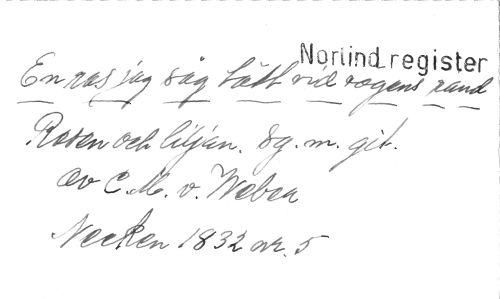 Norlind register
En ros jag såg tätt vid vägens rand
Rosen och liljan. Sg. m. git.
av C. M. v. Weber
Necken 1832 nr. 5